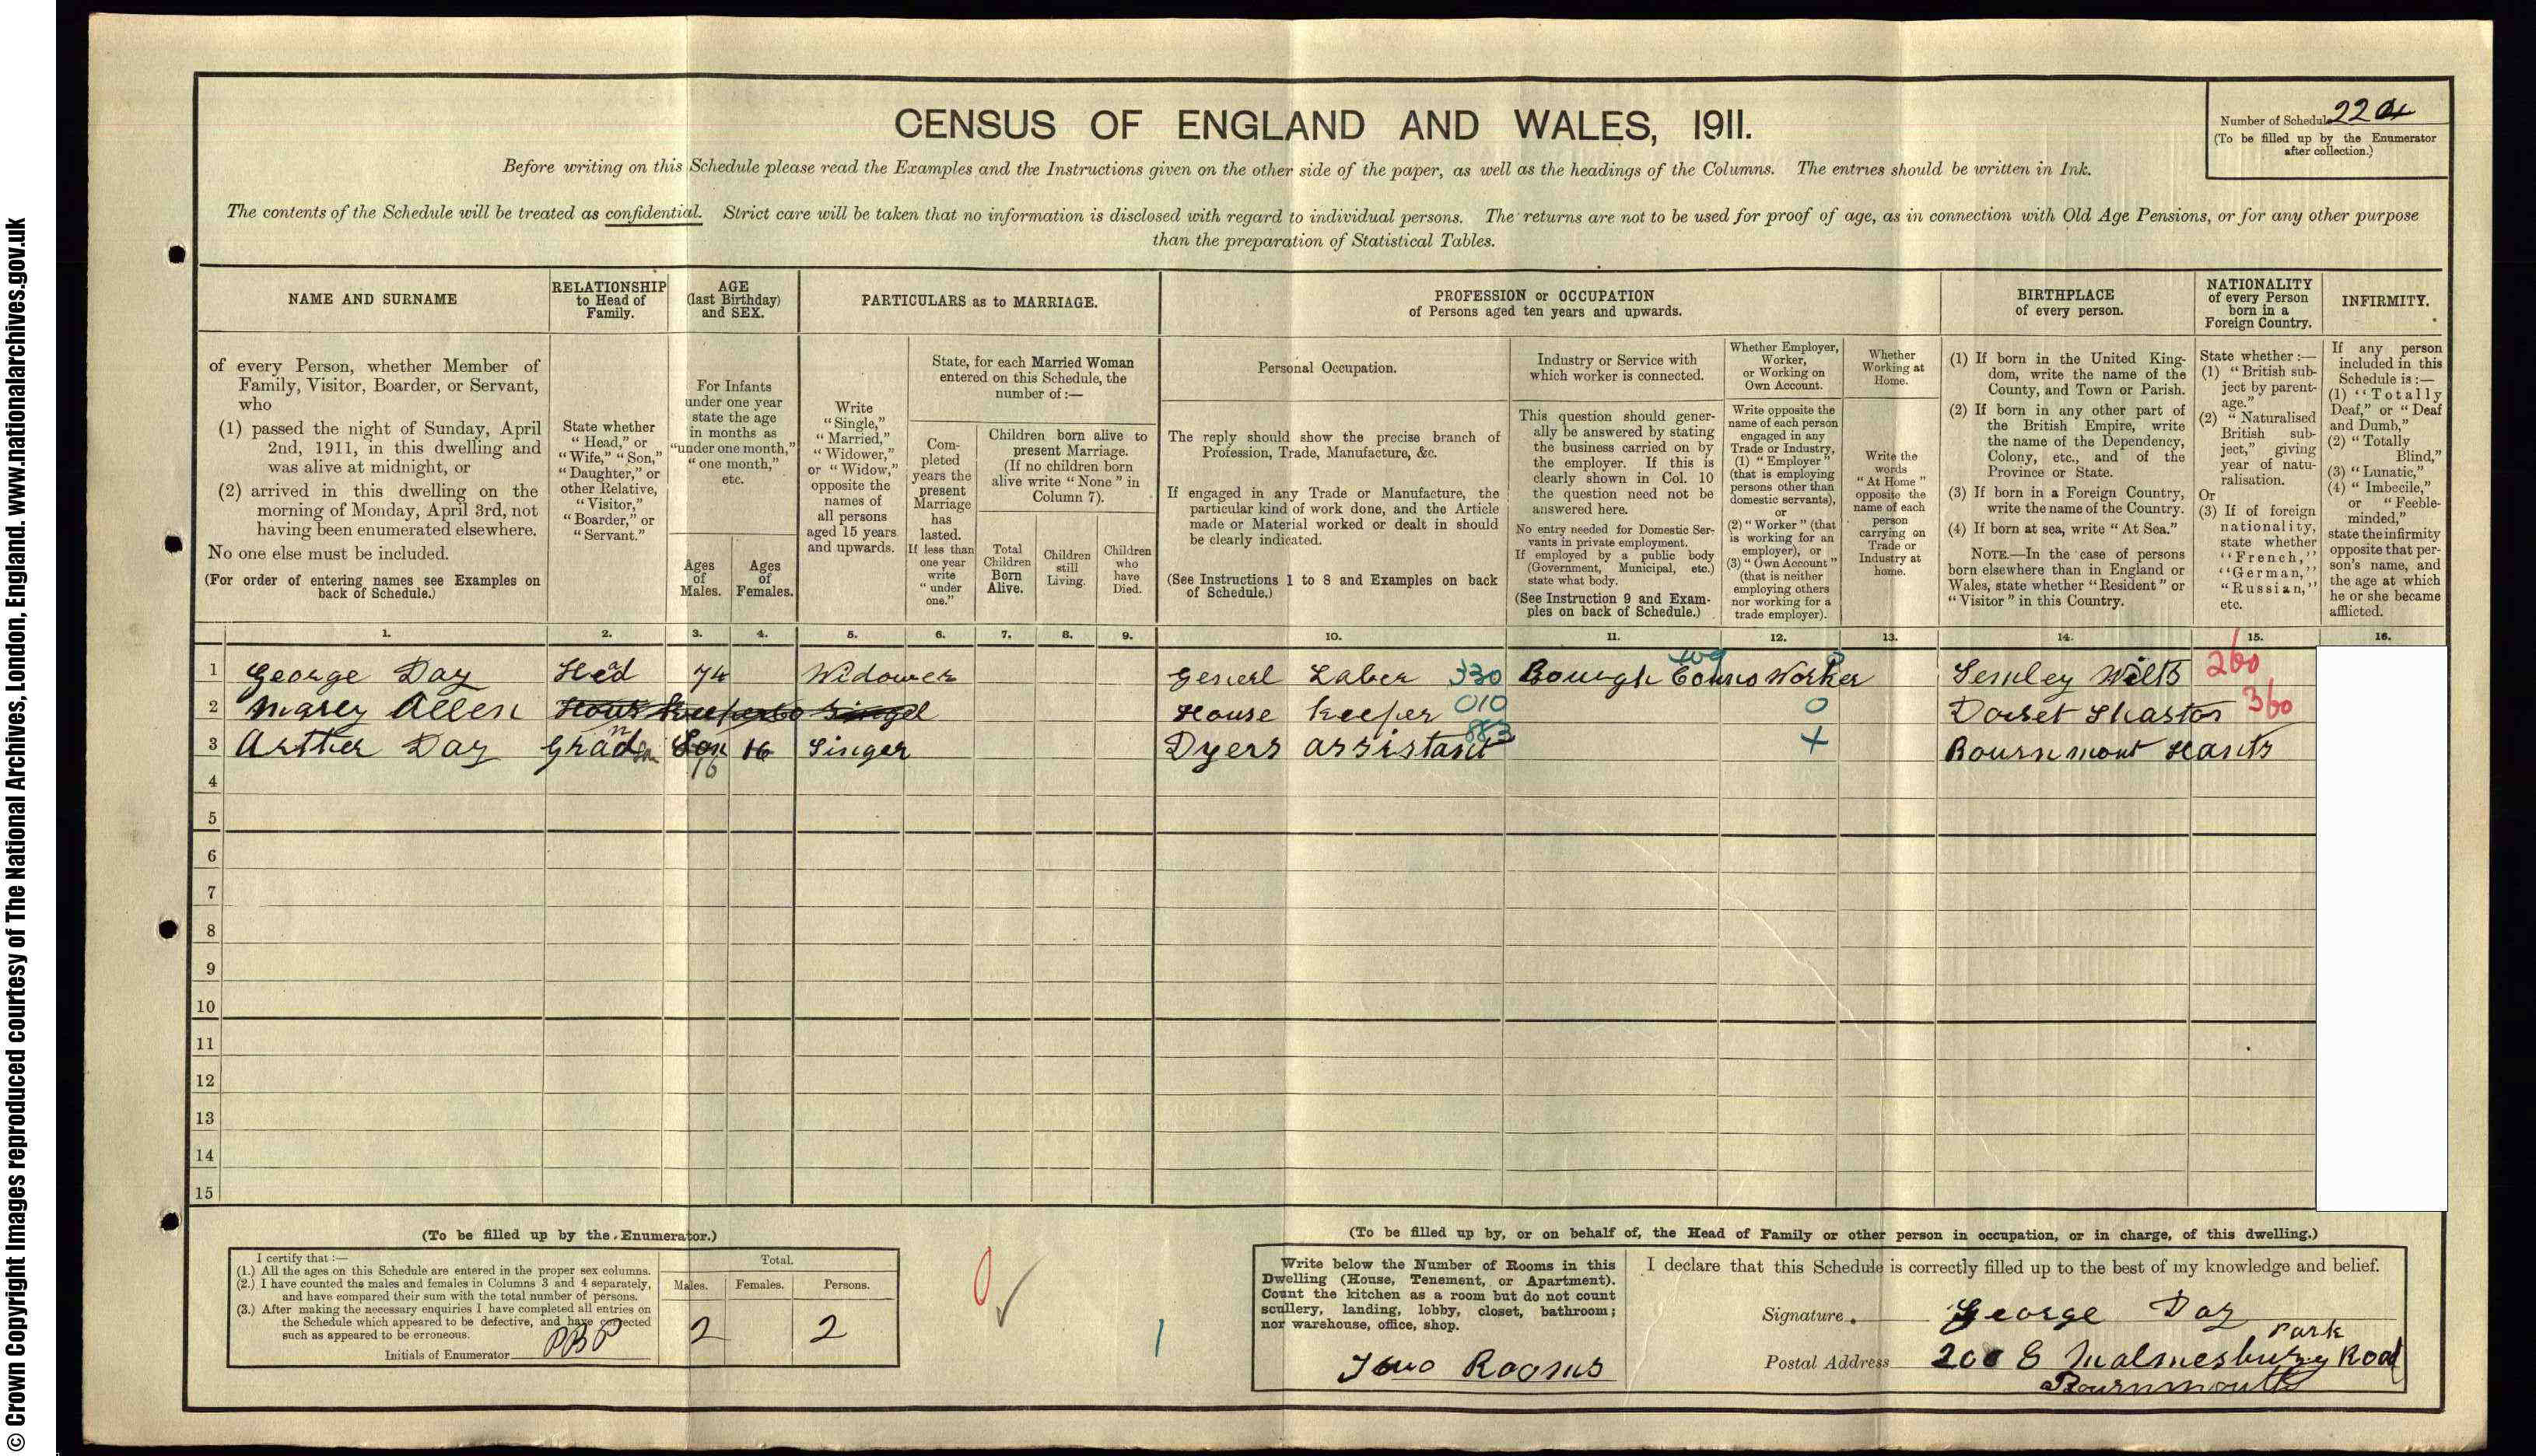 © Crown Copyright Images reproduced courtesy of The National Archives, London, England. www.nationalarchives.gov.uk
CENSUS OF ENGLAND AND WALES, 1911.
Number of Schedule
(To be filled up by the Enumerator
after collection.)
Before writing on this Schedule please read the Examples and the Instructions given on the other side of the paper, as well as the headings of the Columns. The entries should be written in Ink.
The contents of the Schedule will be treated as confidential. Strict care will be taken that no information is disclosed with regard to individual persons. The returns are not to be used for proof of age, as in connection with Old Age Pensions, or for any other purpose
than the preparation of Statistical Tables.
NAME AND SURNAME
of every Person, whether Member of
Family, Visitor, Boarder, or Servant,
who
(1) passed the night of Sunday, April
2nd, 1911, in this dwelling and
was alive at midnight, or
(2) arrived in this dwelling on the
morning of Monday, April 3rd, not
having been enumerated elsewhere.
No one else must be included.
(For order of entering names see Examples on
back of Schedule.)
RELATIONSHIP
to Head of
Family.
State whether
"Head," or
"Wife," "Son,"
"Daughter," or
other Relative,
"Visitor,"
"Boarder," or
"Servant."
AGE
(last Birthday)
and SEX.
For Infants
under one year
state the age
in months as
"under one month,"
"one month,"
etc.
Ages
of
Males.
Ages
of
Females.
PARTICULARS as to MARRIAGE.
Write
"Single,"
"Married,"
"Widower,"
or "Widow,"
opposite the
names of
all persons
aged 15 years
and upwards.
State, for each Married Woman
entered on this Schedule, the
number of :—
Com-
pleted
years the
present
Marriage
has
lasted.
If less than
one year
write
"under
one."
Children born alive to
present Marriage.
(If no children born
alive write "None" in
Column 7).
Total
Children
Born
Alive.
Children
still
Living.
Children
who
have
Died.
PROFESSION or OCCUPATION
of Persons aged ten years and upwards.
Personal Occupation.
The reply should show the precise branch of
Profession, Trade, Manufacture, &c.
If engaged in any Trade or Manufacture, the
particular kind of work done, and the Article
made or Material worked or dealt in should
be clearly indicated.
(See Instructions 1 to 8 and Examples on back
of Schedule.)
Industry or Service with
which worker is connected.
This question should gener-
ally be answered by stating
the business carried on by
the employer. If this is
clearly shown in Col. 10
the question need not be
answered here.
No entry needed for Domestic Ser-
vants in private employment.
If employed by a public body
(Government, Municipal, etc.)
state what body.
(See Instruction 9 and Exam-
ples on back of Schedule.)
Whether Employer,
Worker,
or Working on
Own Account.
Write opposite the
name of each person
engaged in any
Trade or Industry,
(1) "Employer"
(that is employing
persons other than
domestic servants),
or
(2) "Worker" (that
is working for an
employer), or
(3) "Own Account"
(that is neither
employing others
nor working for a
trade employer).
Whether
Working at
Home.
Write the
words
"At Home"
opposite the
name of each
person
carrying on
Trade or
Industry at
home.
BIRTHPLACE
of every person.
(1) If born in the United King-
dom, write the name of the
County, and Town or Parish.
(2) If born in any other part of
the British Empire, write
the name of the Dependency,
Colony, etc., and of the
Province or State.
(3) If born in a Foreign Country,
write the name of the Country.
(4) If born at sea, write "At Sea."
NOTE.—In the case of persons
born elsewhere than in England or
Wales, state whether "Resident" or
"Visitor" in this Country.
NATIONALITY
of every Person
born in a
Foreign Country.
State whether :—
(1) "British sub-
ject by parent-
age."
(2) "Naturalised
British sub-
ject," giving
year of natu-
ralisation.
Or
(3) If of foreign
nationality,
state whether
"French,"
"German,"
"Russian,"
etc.
INFIRMITY.
If any person
included in this
Schedule is :—
(1) "Totally
Deaf," or "Deaf
and Dumb,"
(2) "Totally
Blind,"
(3) "Lunatic,"
(4) "Imbecile,"
or "Feeble-
minded,"
state the infirmity
opposite that per-
son's name, and
the age at which
he or she became
afflicted.
1. 2. 3. 4. 5. 6. 7. 8. 9. 10. 11. 12. 13. 14. 15. 16.
1 George Day Head 74 Widower Generl Laber 930 Bough Worker Semley Wilts 260
2 Marey Allen House keeper 010 0 Dorset Shaston 360
3 Arther Day Grandson 16 16 Singer Dyers assistant 883 + Bournmout Hants
4
5
6
7
8
9
10
11
12
13
14
15
(To be filled up by the Enumerator.)
I certify that :—
(1.) All the ages on this Schedule are entered in the proper sex columns.
(2.) I have counted the males and females in Columns 3 and 4 separately,
and have compared their sum with the total number of persons.
(3.) After making the necessary enquiries I have completed all entries on
the Schedule which appeared to be defective, and have corrected
such as appeared to be erroneous.
Initials of Enumerator PBP
Total.
Males. Females. Persons.
2 2
0
1
(To be filled up by, or on behalf of, the Head of Family or other person in occupation, or in charge, of this dwelling.)
Write below the Number of Rooms in this
Dwelling (House, Tenement, or Apartment).
Count the kitchen as a room but do not count
scullery, landing, lobby, closet, bathroom;
nor warehouse, office, shop.
Two Rooms
I declare that this Schedule is correctly filled up to the best of my knowledge and belief.
Signature George Day
Postal Address Malmesbury Park Road
Bournmouth